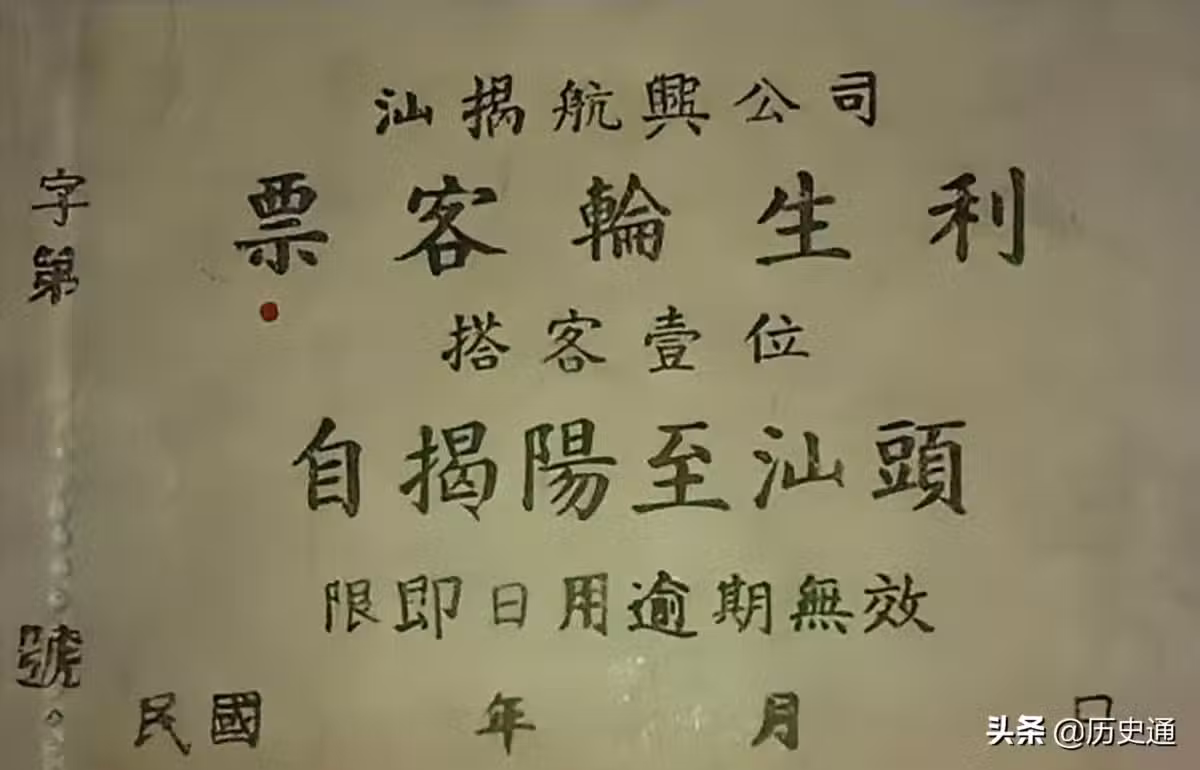 汕揭航興公司
利生輪客票
搭客壹位
自揭陽至汕頭
限即日用逾期無效
民國 年 月 日
字第 號
头条 @历史通